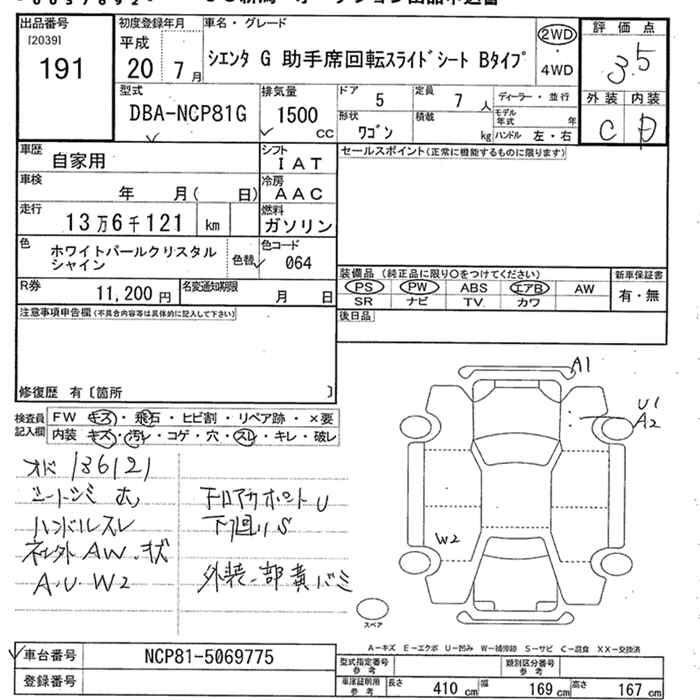 出品番号
[2039]
191
初度登録年月
平成
20年 7月
車名・グレード
シエンタ G 助手席回転スライドシート Bタイプ
2WD
4WD
評価点
3.5
外装 内装
C D
型式
DBA-NCP81G
排気量
1500
cc
ドア 5
定員 7 人
ディーラー・並行
形状 ワゴン
積載 kg
モデル年式 年
ハンドル 左・右
車歴 自家用
シフト IAT
セールスポイント(正常に機能するものに限ります)
車検 年 月( 日)
冷房 AAC
走行 13万6千121 km
燃料 ガソリン
色 ホワイトパールクリスタルシャイン
色替
色コード 064
装備品 (純正品に限り○をつけてください)
新車保証書
PS PW ABS エアB AW
SR ナビ TV カワ
有・無
R券 11,200円
名変通知期限 月 日
注意事項申告欄(不具合内容等は具体的に記入して下さい)
後日品
修復歴 有〔箇所 〕
検査員記入欄
FW キズ・飛石・ヒビ割・リペア跡・×要
内装 キズ・汚レ・コゲ・穴・スレ・キレ・破レ
A1
U1
A2
W2
オド 136121
シートシミ 大
ハンドルスレ
AW.キズ
A.U.W2
U
下回りS
外装一部黄バミ
スペア
A−キズ E−エクボ U−凹み W−補修跡 S−サビ C−腐食 XX−交換済
車台番号 NCP81-5069775
登録番号
型式指定番号 参考
類別区分番号 参考
車庫証明用 参考
長さ 410 cm 幅 169 cm 高さ 167 cm